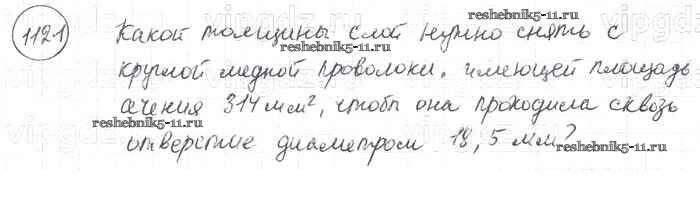 1121 Какой толщины слой нужно снять с
круглой медной проволоки, имеющей площадь
сечения 314 мм², чтобы она проходила сквозь
отверстие диаметром 18,5 мм?
reshebnik5-11.ru
reshebnik5-11.ru
reshebnik5-11.ru
reshebnik5-11.ru